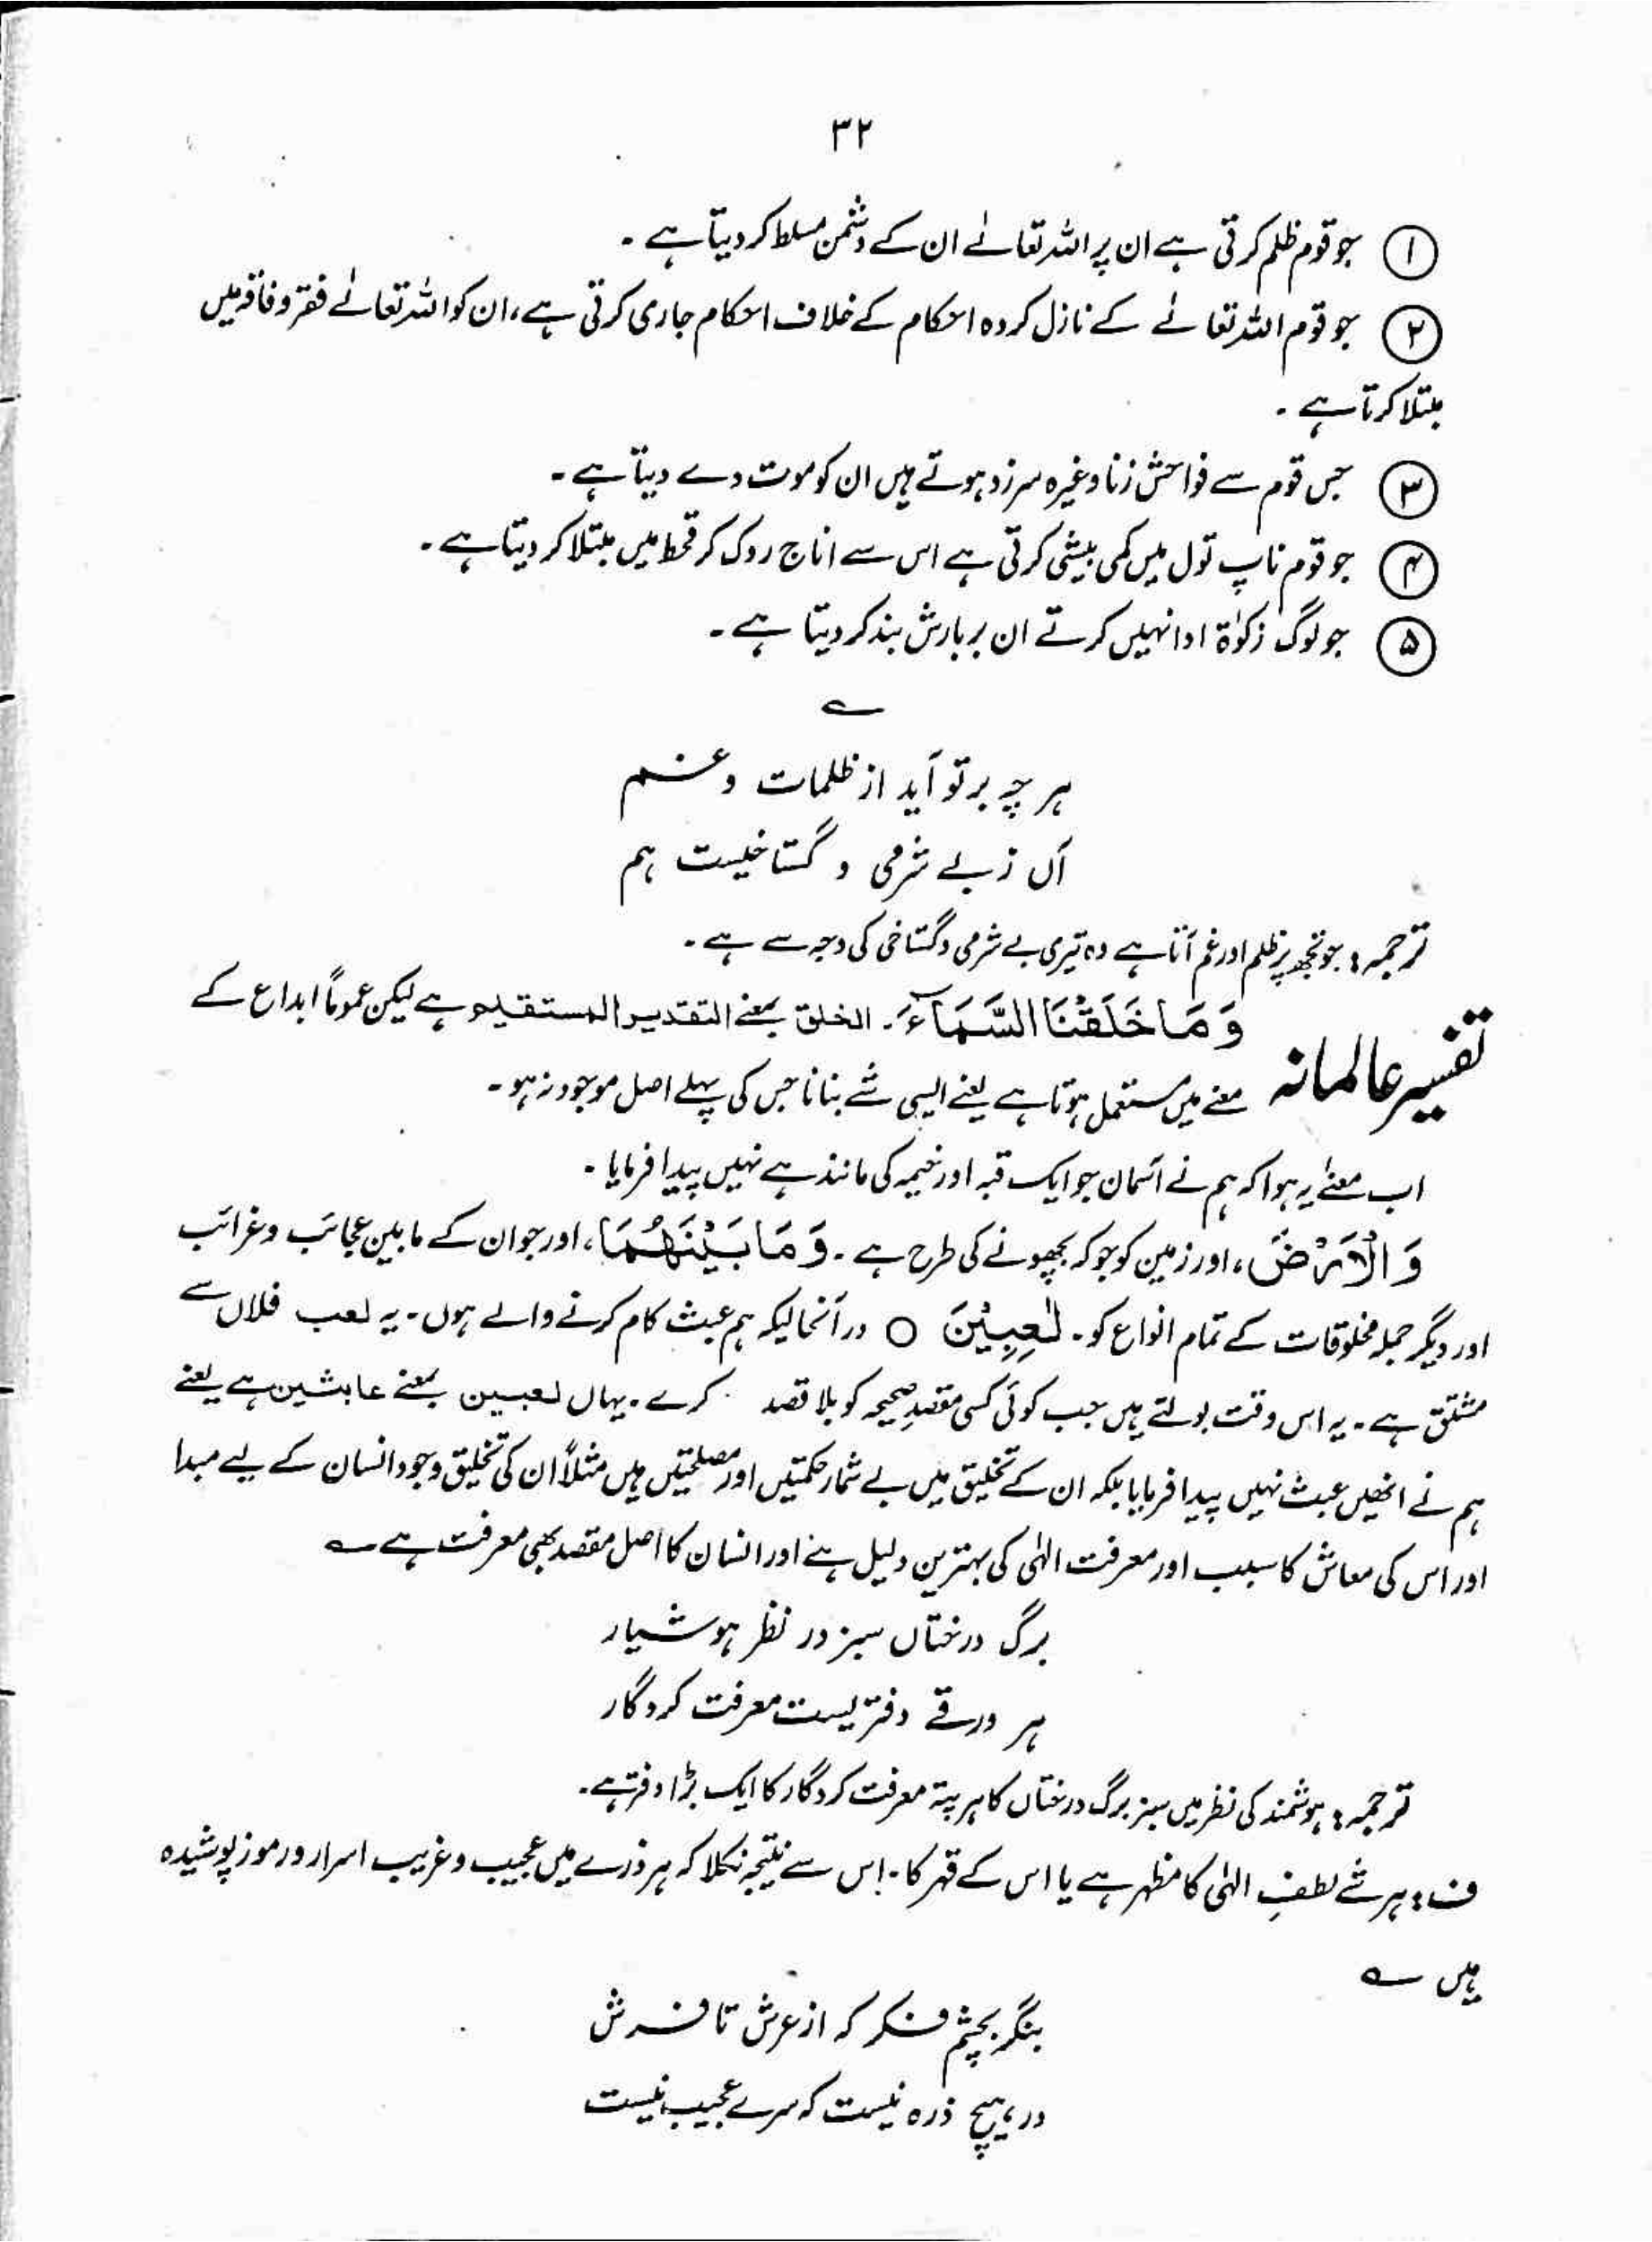 ۳۲
① جو قوم ظلم کرتی ہے ان پر اللہ تعالےٰ ان کے دشمن مسلط کر دیتا ہے ۔
② جو قوم اللہ تعالےٰ کے نازل کردہ احکام کے خلاف احکام جاری کرتی ہے، ان کو اللہ تعالےٰ فقر و فاقہ میں
مبتلا کرتا ہے ۔
③ جس قوم سے فواحش زنا وغیرہ سرزد ہوتے ہیں ان کو موت دے دیتا ہے ۔
④ جو قوم ناپ تول میں کمی بیشی کرتی ہے اس سے اناج روک کر قحط میں مبتلا کر دیتا ہے ۔
⑤ جو لوگ زکوٰۃ ادا نہیں کرتے ان پر بارش بند کر دیتا ہے ۔
؎
ہر چہ بر تو آید از ظلمات و غم
آں ز بے شرمی و گستاخیست ہم
ترجمہ : جو تجھ پر ظلم اور غم آتا ہے وہ تیری بے شرمی و گستاخی کی وجہ سے ہے ۔
تفسیر عالمانہ وَ مَا خَلَقْنَا السَّمَآءَ ۔ الخلق بمعنے التقدیر المستقیم ہے لیکن عموماً ابداع کے
معنے میں مستعمل ہوتا ہے یعنے ایسی شے بنانا جس کی پہلے اصل موجود نہ ہو ۔
اب معنےٰ یہ ہوا کہ ہم نے آسمان جو ایک قبہ اور خیمہ کی مانند ہے نہیں پیدا فرمایا ۔
وَ الْاَرْضَ ، اور زمین کو جو کہ بچھونے کی طرح ہے ۔ وَ مَا بَیْنَهُمَا ، اور جو ان کے مابین عجائب و غرائب
اور دیگر جملہ مخلوقات کے تمام انواع کو ۔ لٰعِبِیْنَ ○ درآنحالیکہ ہم عبث کام کرنے والے ہوں ۔ یہ لعب فلاں سے
مشتق ہے ۔ یہ اس وقت بولتے ہیں جب کوئی کسی مقصدِ صحیحہ کو بلا قصد کرے ۔ یہاں لعبین بمعنے عابثین ہے یعنے
ہم نے انھیں عبث نہیں پیدا فرمایا بلکہ ان کے تخلیق میں بے شمار حکمتیں اور مصلحتیں ہیں مثلاً ان کی تخلیق وجود انسان کے لیے مبدا
اور اس کی معاش کا سبب اور معرفت الٰہی کی بہترین دلیل ہے اور انسان کا اصل مقصد بھی معرفت ہے ؎
برگ درختاں سبز در نظر ہوشیار
ہر ورقے دفتریست معرفت کردگار
ترجمہ : ہوشمند کی نظر میں سبز برگ درختاں کا ہر پتہ معرفت کردگار کا ایک بڑا دفتر ہے ۔
ف : ہر شے لطفِ الٰہی کا مظہر ہے یا اس کے قہر کا ۔ اس سے نتیجہ نکلا کہ ہر ذرے میں عجیب و غریب اسرار و رموز پوشیدہ
ہیں ؎
بنگر بچشم فکر کہ از عرش تا فرش
در ہیچ ذرہ نیست کہ سرے عجیب نیست